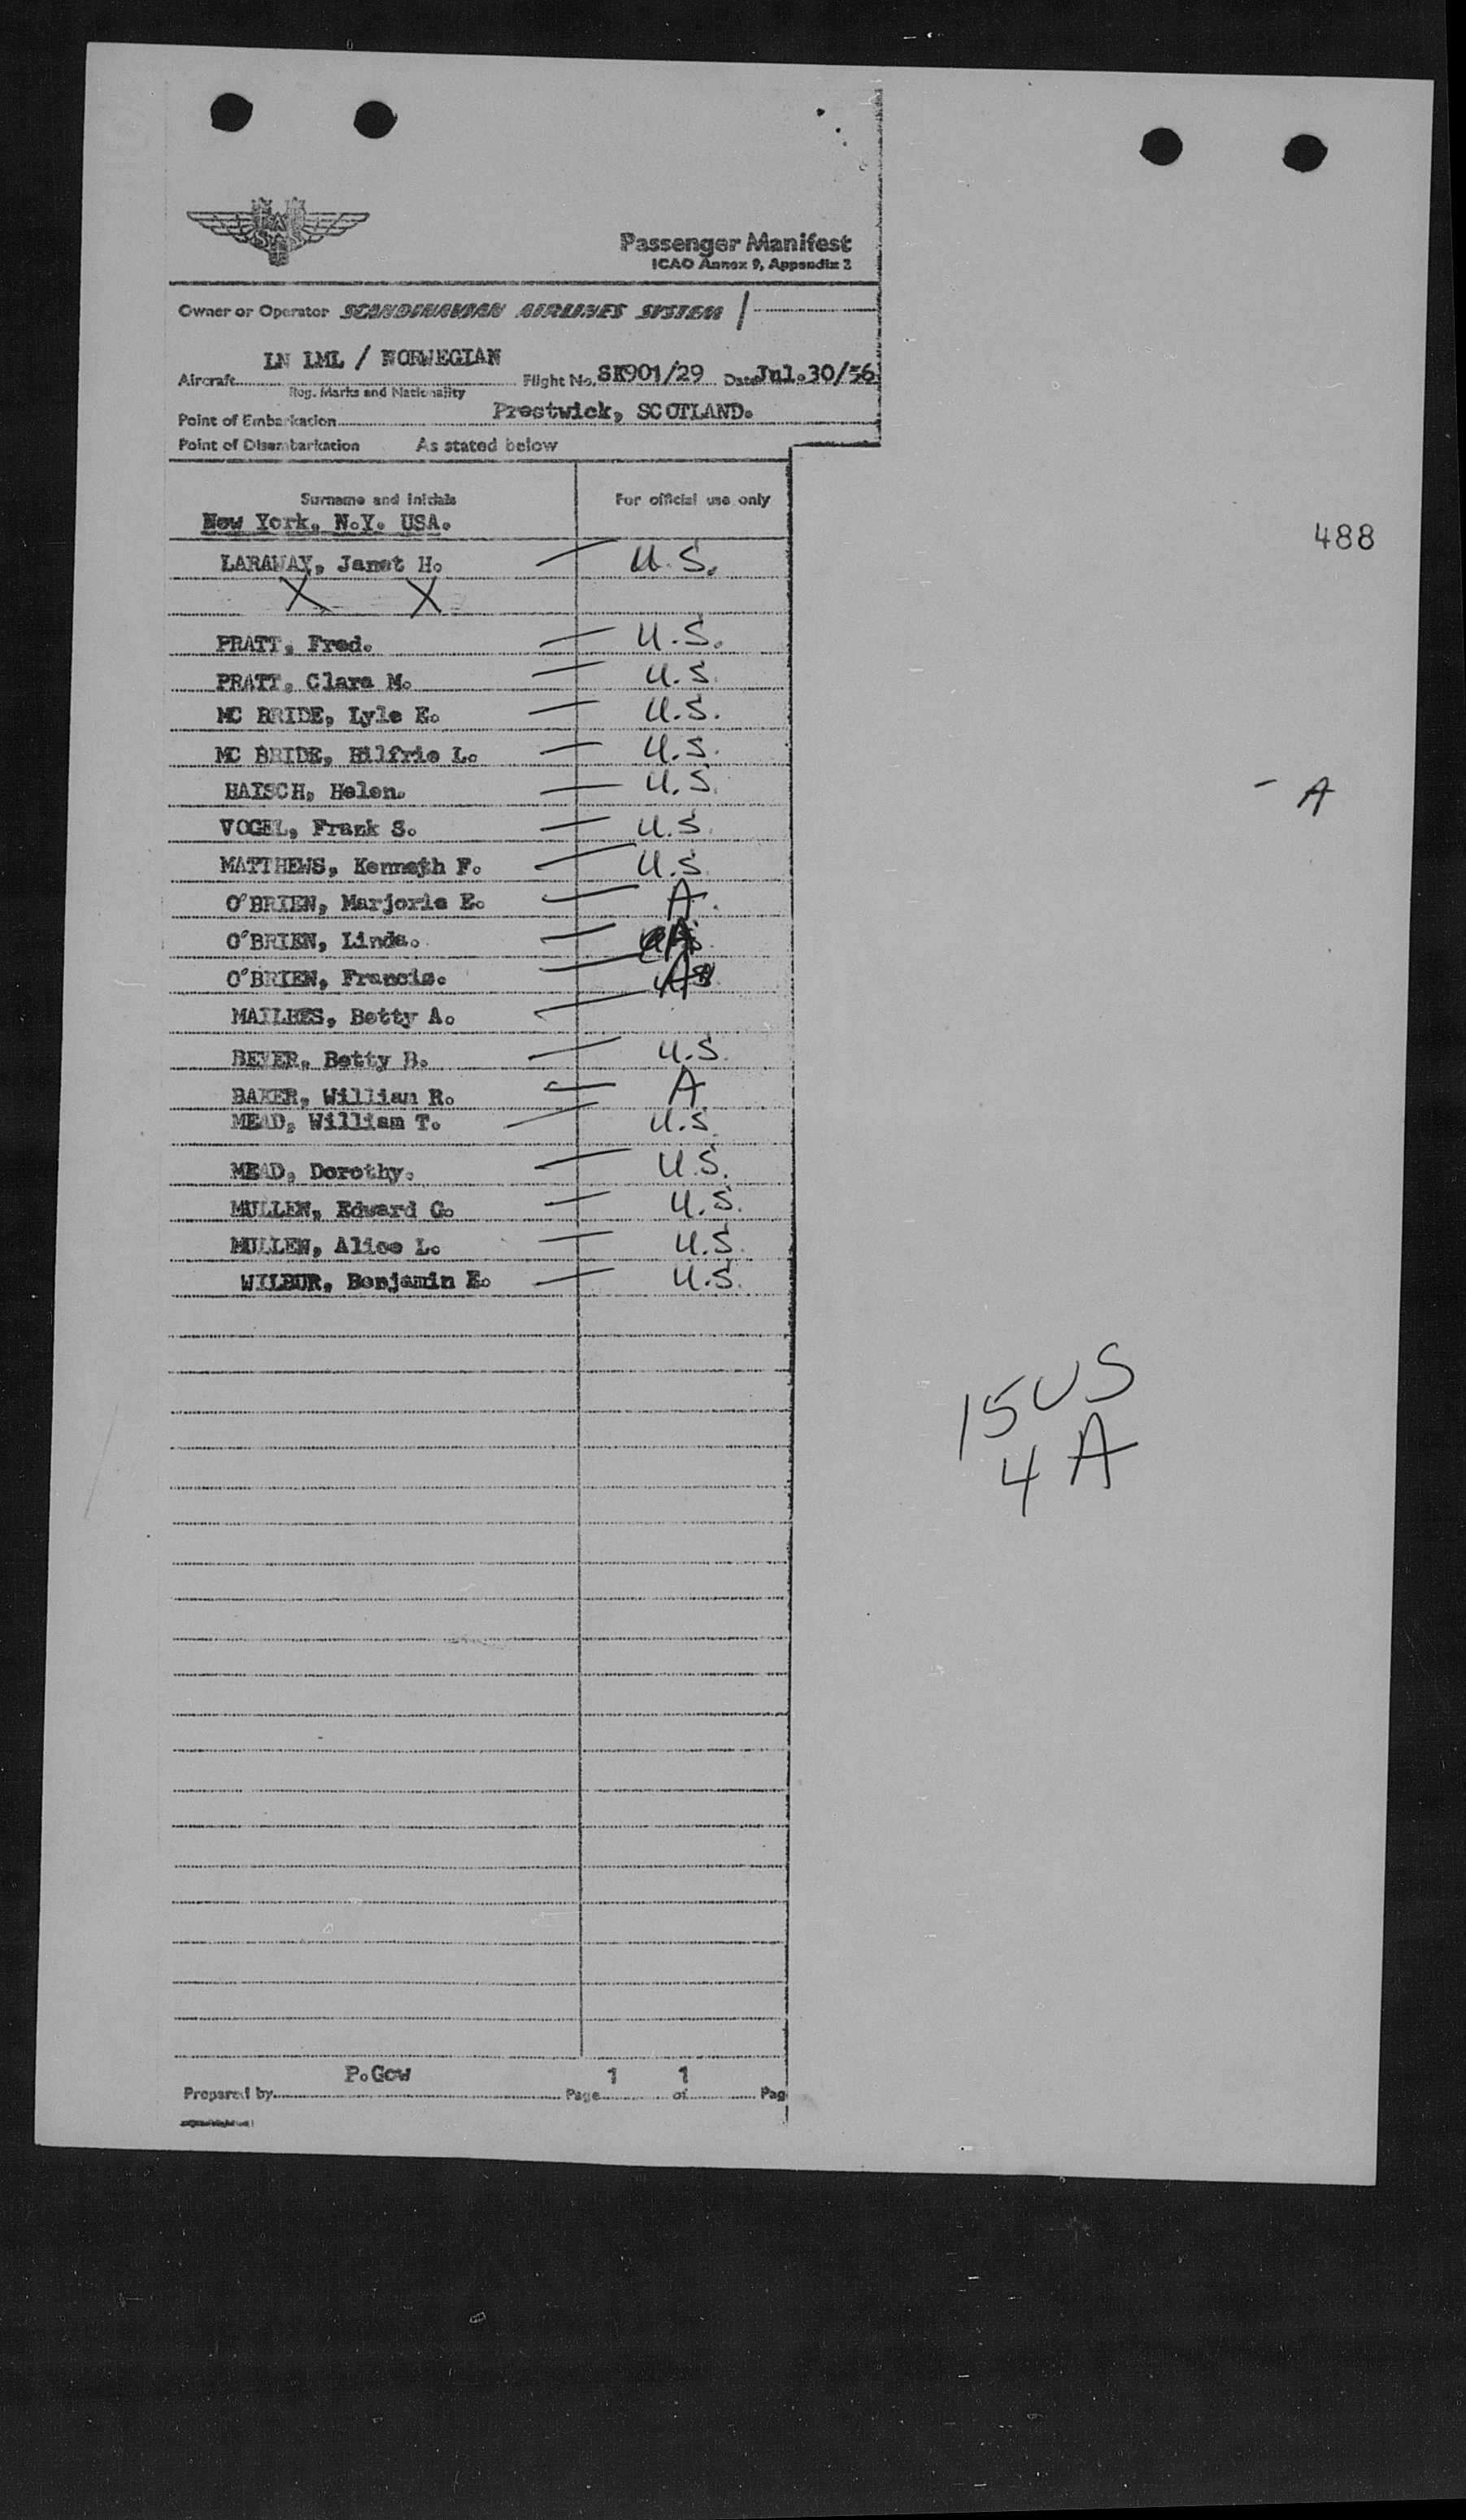 SAS
Passenger Manifest
ICAO Annex 9, Appendix 2
Owner or Operator SCANDINAVIAN AIRLINES SYSTEM /
LN LML / NORWEGIAN
Aircraft Flight No. SK901/29 Date Jul.30/56
Reg. Marks and Nationality
Point of Embarkation Prestwick, SCOTLAND.
Point of Disembarkation As stated below
Surname and initials For official use only
New York, N.Y. USA.
488
LARAWAY, Janet H. — U.S.
X X
PRATT, Fred. — U.S.
PRATT, Clara M. — U.S.
MC BRIDE, Lyle E. — U.S.
MC BRIDE, Hilfrie L. — U.S.
HAISCH, Helen. — U.S.
- A
VOGEL, Frank S. — U.S.
MATTHEWS, Kenneth F. — U.S.
O'BRIEN, Marjorie E. — A.
O'BRIEN, Linda. — A
O'BRIEN, Francis. — A
MAILHES, Betty A. —
BEYER, Betty B. — U.S.
BAKER, William R. — A
MEAD, William T. — U.S.
MEAD, Dorothy. — U.S.
MULLEN, Edward G. — U.S.
MULLEN, Alice L. — U.S.
WILBUR, Benjamin E. — U.S.
15 US
4 A
P.Gow 1 1
Prepared by Page of Pag